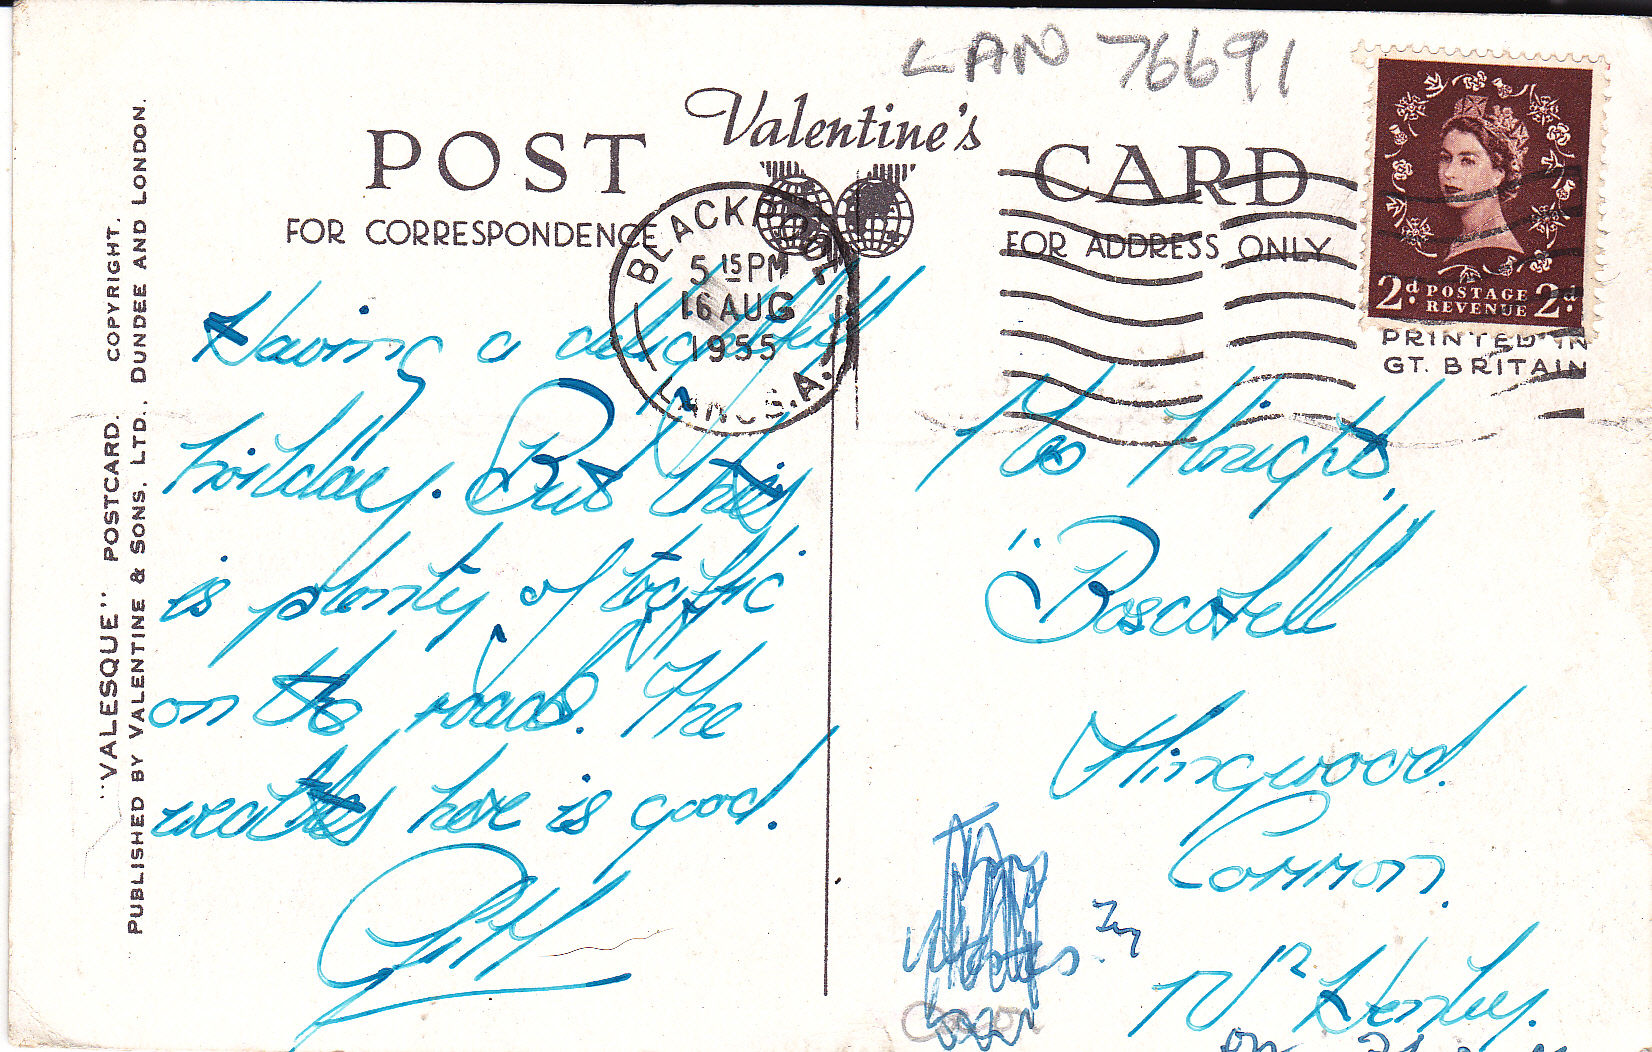 LAN 76691
Valentine's
POST CARD
FOR CORRESPONDENCE
FOR ADDRESS ONLY
BLACKPOOL
5 15 PM
16 AUG
1955
LANCS. A.
2d POSTAGE 2d
REVENUE
PRINTED IN
GT. BRITAIN
"VALESQUE" POSTCARD. COPYRIGHT.
PUBLISHED BY VALENTINE & SONS, LTD., DUNDEE AND LONDON.
Having a delightfull
holiday. But this
is plenty of traffic
on the roads. The
weather here is good.
Mrs Knight,
"Boscobell
Kingwood
Common.
Nr Henley.
on